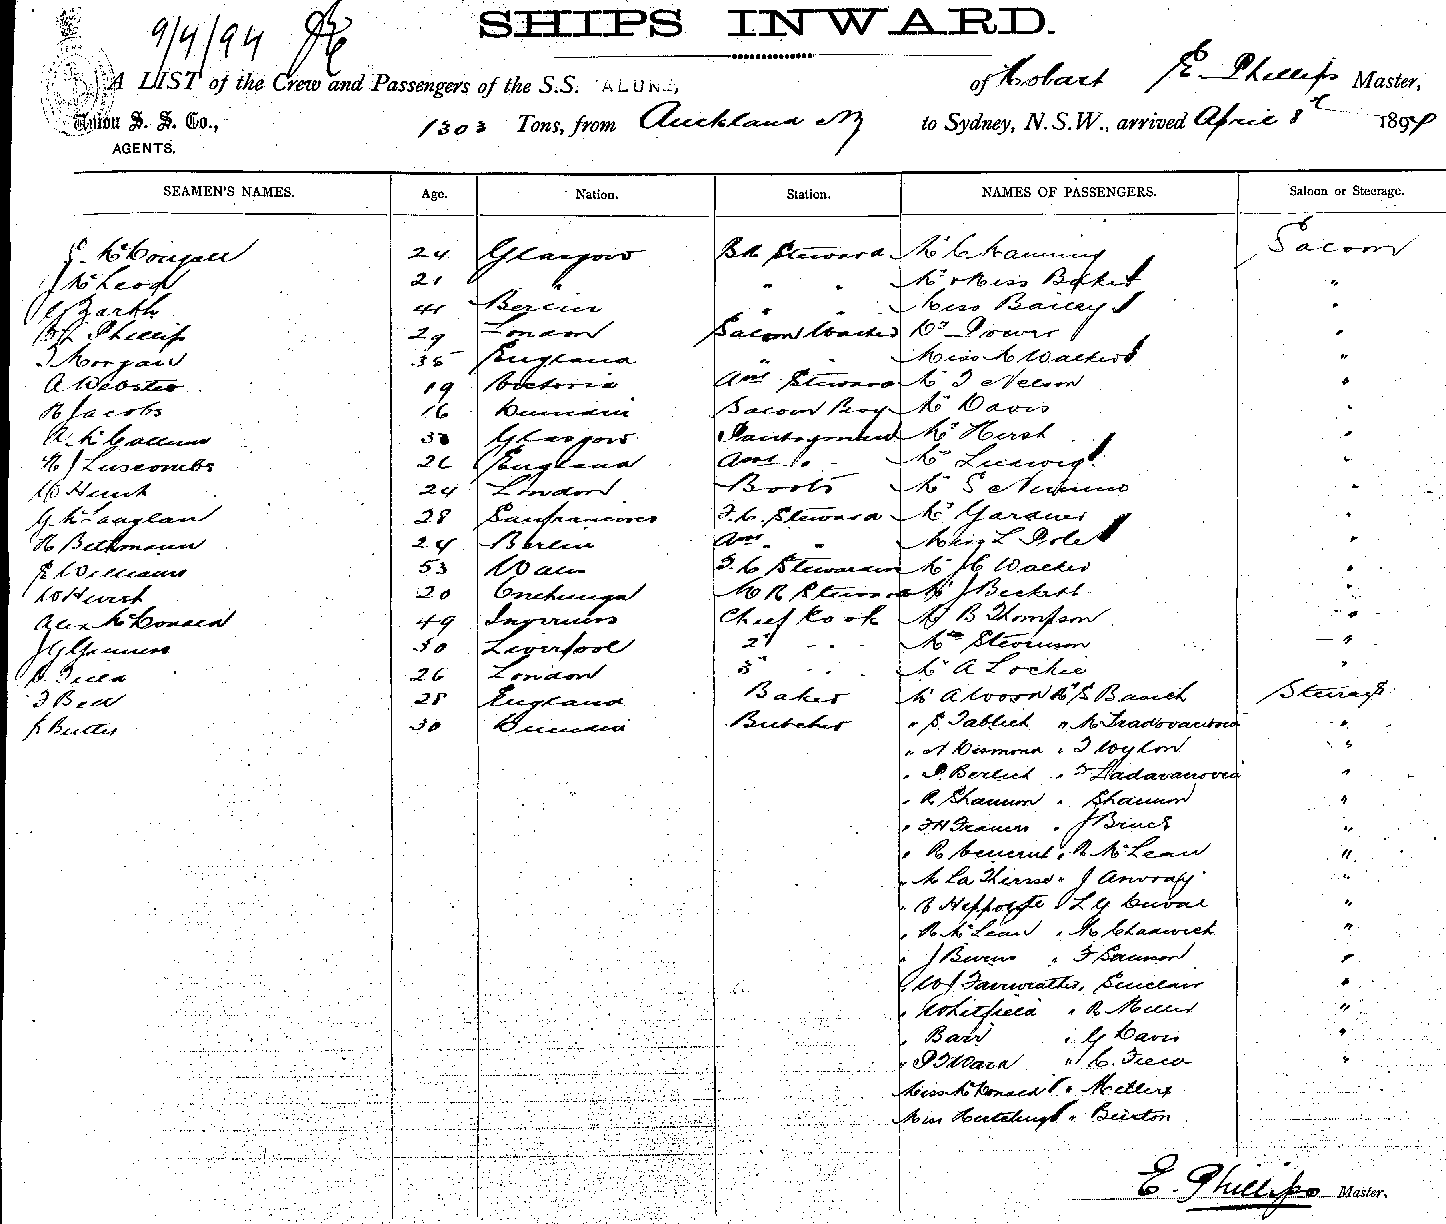 SHIPS INWARD.
9/4/94
A LIST of the Crew and Passengers of the S.S. TALUNE, of Hobart E. Phillips Master,
Union S. S. Co., 1303 Tons, from Auckland NZ to Sydney, N.S.W., arrived April 8th 1894
AGENTS.
SEAMEN'S NAMES. Age. Nation. Station. NAMES OF PASSENGERS. Saloon or Steerage.
McDougall 24 Glasgow Bk Steward Mr C Manning Saloon
J McLeod 21 " " " Mr & Miss Baker "
Barth 41 Berlin " " Miss Bailey "
Phillips 29 London Saloon Waiter Dr Power "
T Morgan 35 England " " Miss M Walker "
A Webster 19 Victoria Asst Steward Mr T Nelson "
R Jacobs 16 Dunedin Saloon Boy Mr Davis "
A McCallum Glasgow Pantryman Mr Hirsh "
H J Luscombe 26 England Asst Do Mr Ludwig "
W Hunt 24 London Boots Mr "
28 Sanfrancisco F.C. Steward Mr Gardner "
H Bethmann 24 Berlin Asst " " Miss L Pole "
E Williams 53 Wales F.C. Stewardess Mr J C Walker "
W Hewish 20 Onehunga M R Steward Mr J Beckett "
Alex McDonald 49 Inverness Chief Cook Mr B Thompson "
J G 30 Liverpool 2nd " Mrs Stevenson "
Field 26 London 3rd " Mr A Lockie "
T Bed 28 England Baker Mr A Wood Mr S Banich Steerage
J Butler 30 Dunedin Butcher " S Tablich " M "
" A Desmond " T Wylon "
" P. Berlich " "
" R Shannon " Shannon "
" F H Francis " J Bruce "
" R " R McLean "
" M La Thiesse " J "
" B Hippolyte " L G Duval "
" R McLean " R Chadwick "
" J Burns " F Seamon "
" W J Fairweather " Sinclair "
" Whitfield " R Miller "
" Barr " G Davis "
" P T Ward " C. Field "
Miss McDonald " Mellers
Miss Hutchings " Buxton
E. Phillips Master.